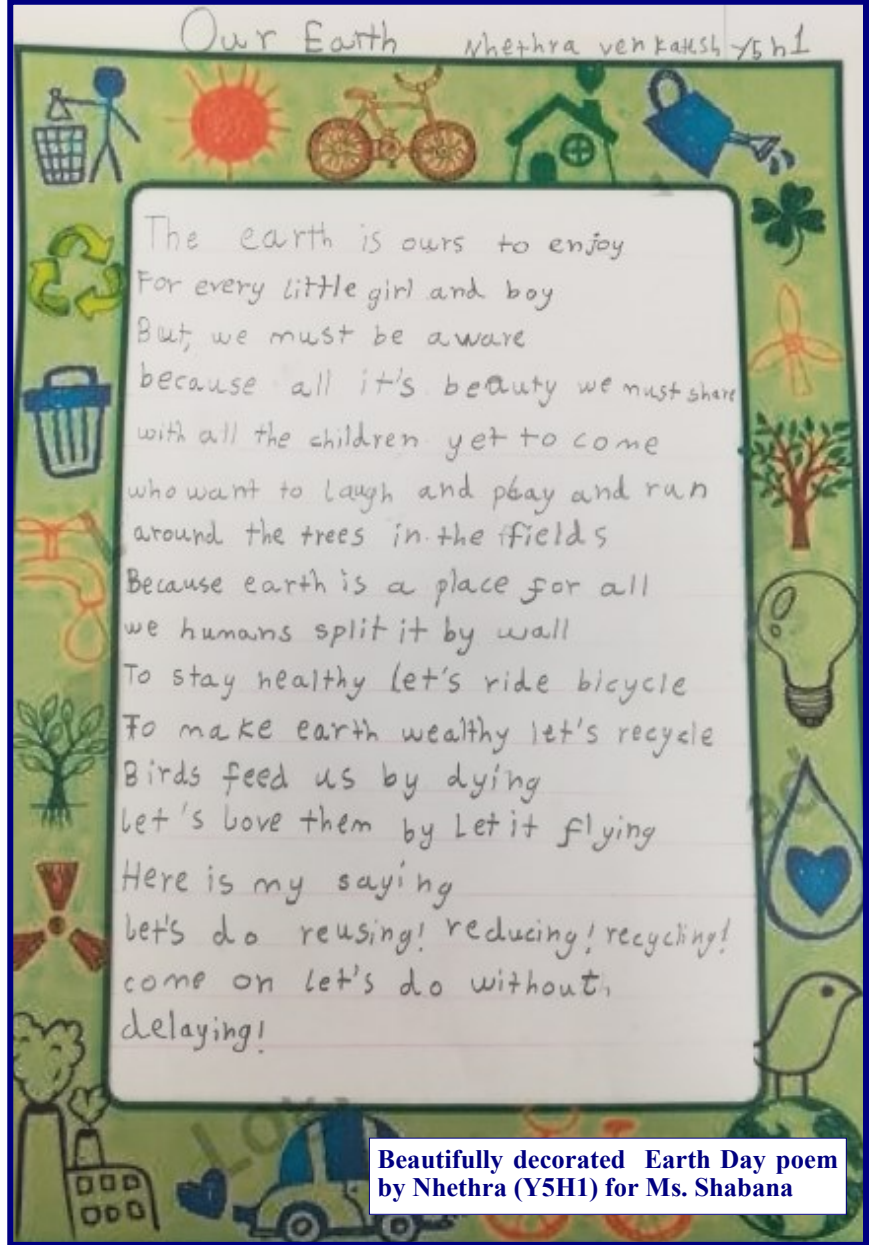 Our Earth Nhethra venkatesh Y5h1
The earth is ours to enjoy
For every little girl and boy
But, we must be aware
because all it's beauty we must share
with all the children yet to come
who want to laugh and play and run
around the trees in the fields
Because earth is a place for all
we humans split it by wall
To stay healthy let's ride bicycle
To make earth wealthy let's recycle
Birds feed us by dying
Let's love them by Let it flying
Here is my saying
Let's do reusing! reducing! recycling!
come on let's do without
delaying!
Beautifully decorated Earth Day poem
by Nhethra (Y5H1) for Ms. Shabana